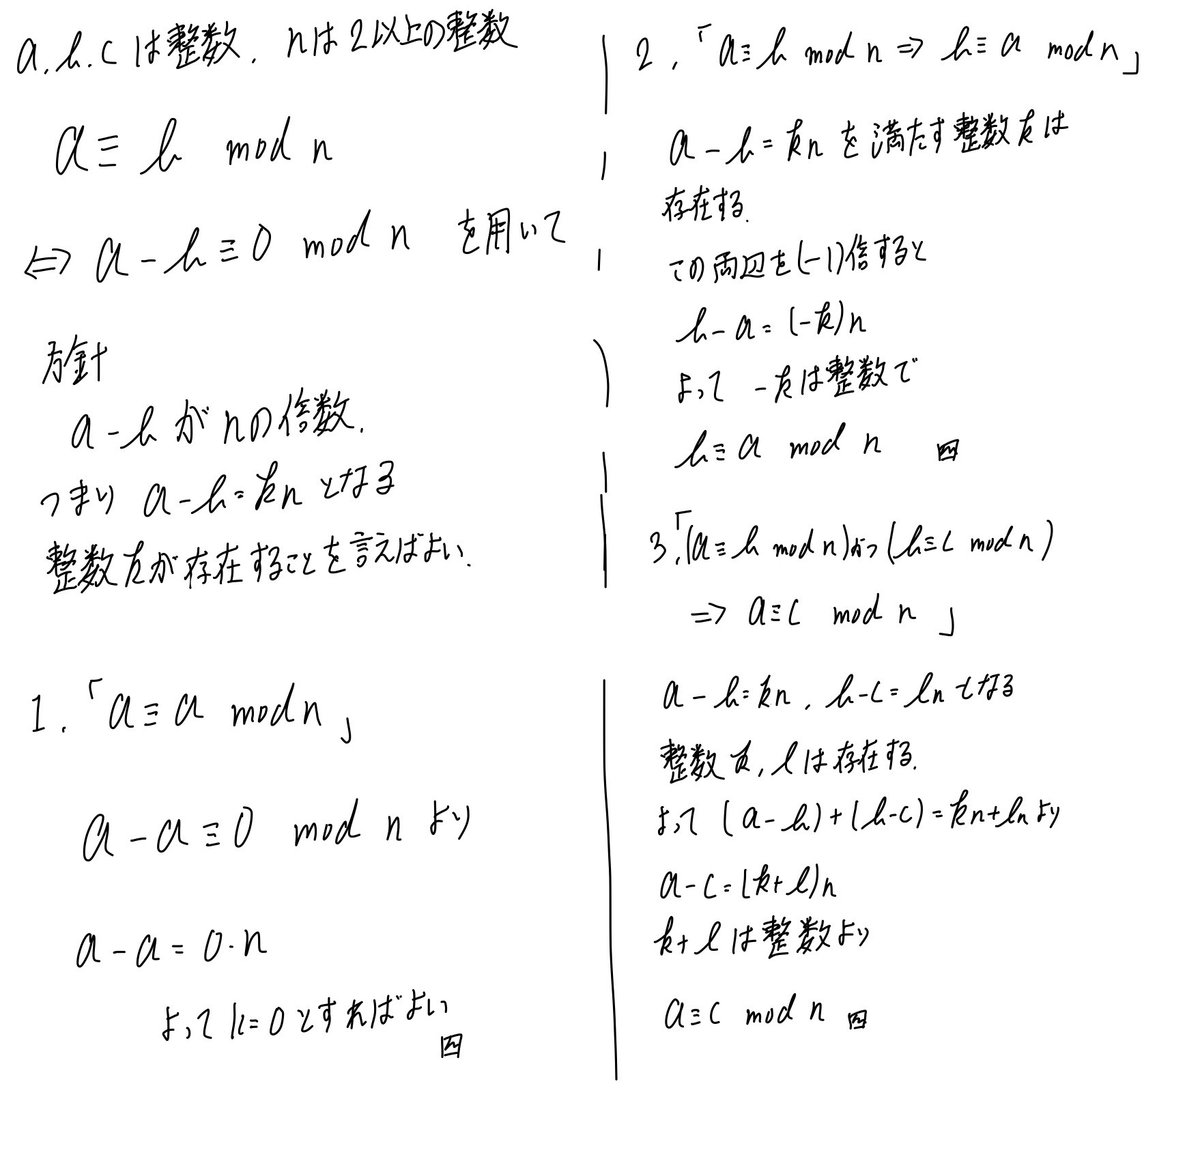 a, b, c は整数, nは2以上の整数
a ≡ b mod n
⇔ a − b ≡ 0 mod n を用いて
方針
a − b が nの倍数.
つまり a − b = kn となる
整数kが存在することを言えばよい.
1. 「a ≡ a mod n」
a − a ≡ 0 mod n より
a − a = 0・n
よって k = 0 とすればよい
四
2. 「a ≡ b mod n ⇒ b ≡ a mod n」
a − b = kn を満たす整数kは
存在する.
この両辺を(−1)倍すると
b − a = (−k)n
よって −kは整数で
b ≡ a mod n 四
3. 「(a ≡ b mod n)かつ(b ≡ c mod n)
⇒ a ≡ c mod n 」
a − b = kn , b − c = ln となる
整数 k, l は存在する.
よって (a − b) + (b − c) = kn + ln より
a − c = (k + l)n
k + l は整数より
a ≡ c mod n 四